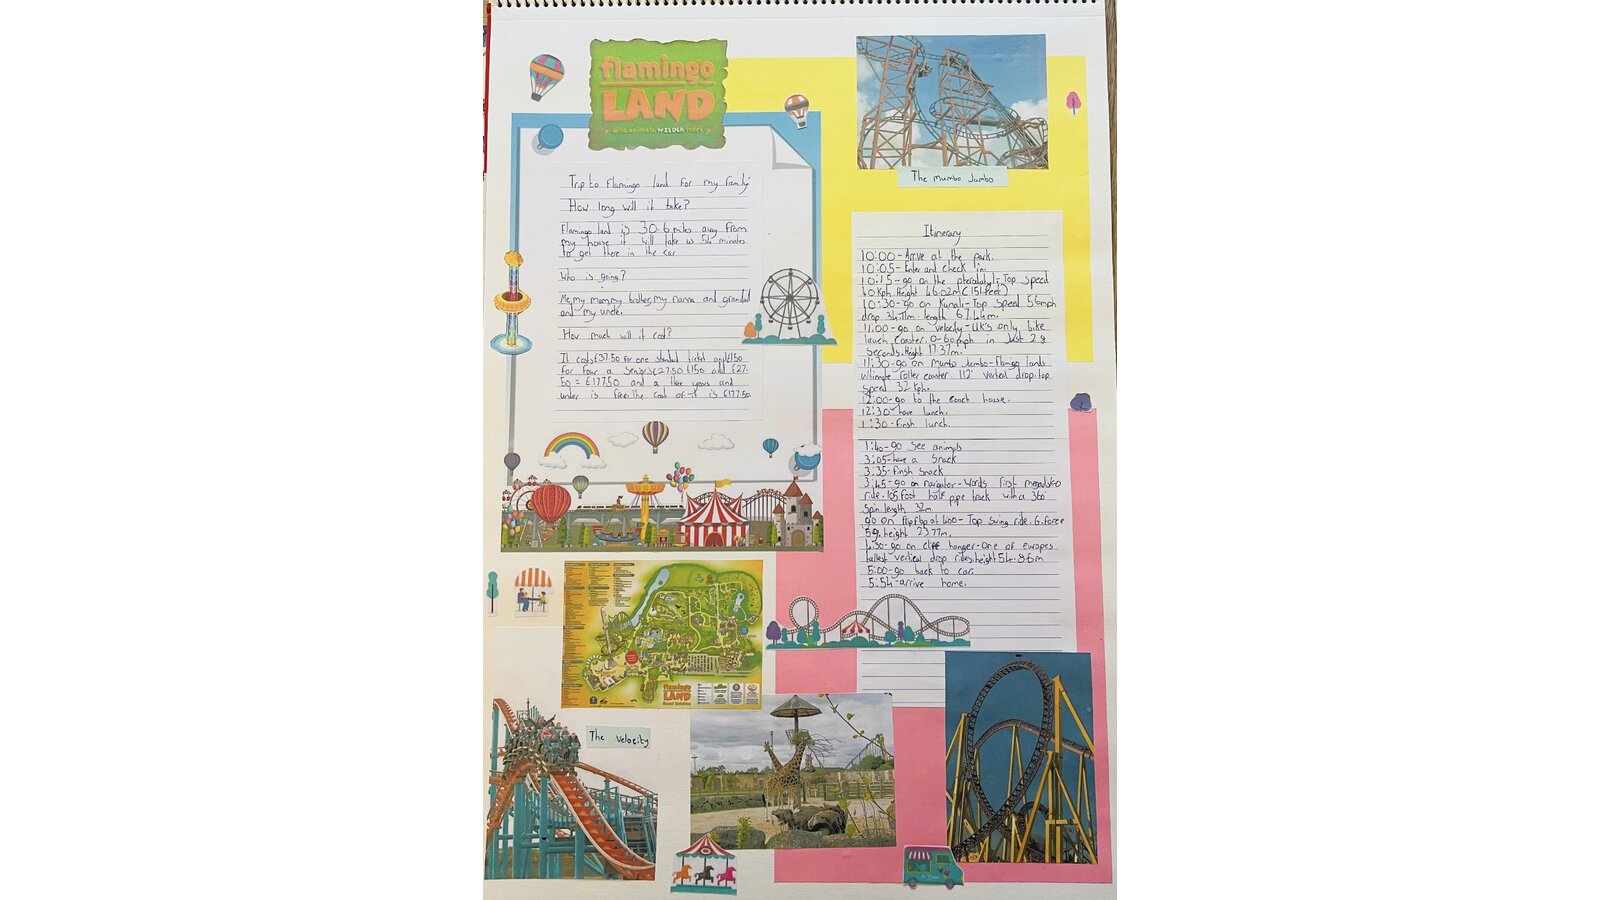 flamingo
LAND
wild animals, WILDER rides
Trip to Flamingo land for my family
How long will it take?
Flamingo land is 30.6 miles away from
my house it will take us 54 minutes
to get there in the car
Who is going?
Me, my mummy brother, my nanna and grandad
and my uncle.
How much will it cost?
It costs £37.50 for one standard ticket £150
for four a senior is £27.50 £150 add £27.
50 = £177.50 and a three years and
under is free. The cost of it is £177.50.
The Mumbo Jumbo
Itinerary
10:00-Arrive at the park.
10:05-Enter and check in.
10:15-go on the pterodactyl-Top speed
40kph. Height 46.02m (151feet)
10:30-go on Kumali-Top Speed 56mph
drop 34.11m. length 67.44m.
11:00-go on velocity-UK's only bike
lauch coaster. 0-60mph in Just 2.8
Seconds. Height 17.37m.
11:30-go on Mumbo Jumbo-Flamigo lands
ultimate roller coaster 112° vertical drop. top
speed 32kph.
12:00-go to the coach house.
12:30-have lunch.
1:30-finish lunch.
1:40-go see animals
3:05-have a Snack
3:35-finish snack
3:45-go on navigator-Words first
ride. 105 foot half pipe track with a 360°
Spin. length 32m
go on flipflop at 4:00-Top Swing ride. G.force
5g. height 23.77m.
4:30-go on cliff hanger-One of europes
tallest vertical drop rides. height 54.86m
5:00-go back to car.
5:54-arrive home.
flamingo
LAND
The Velocity